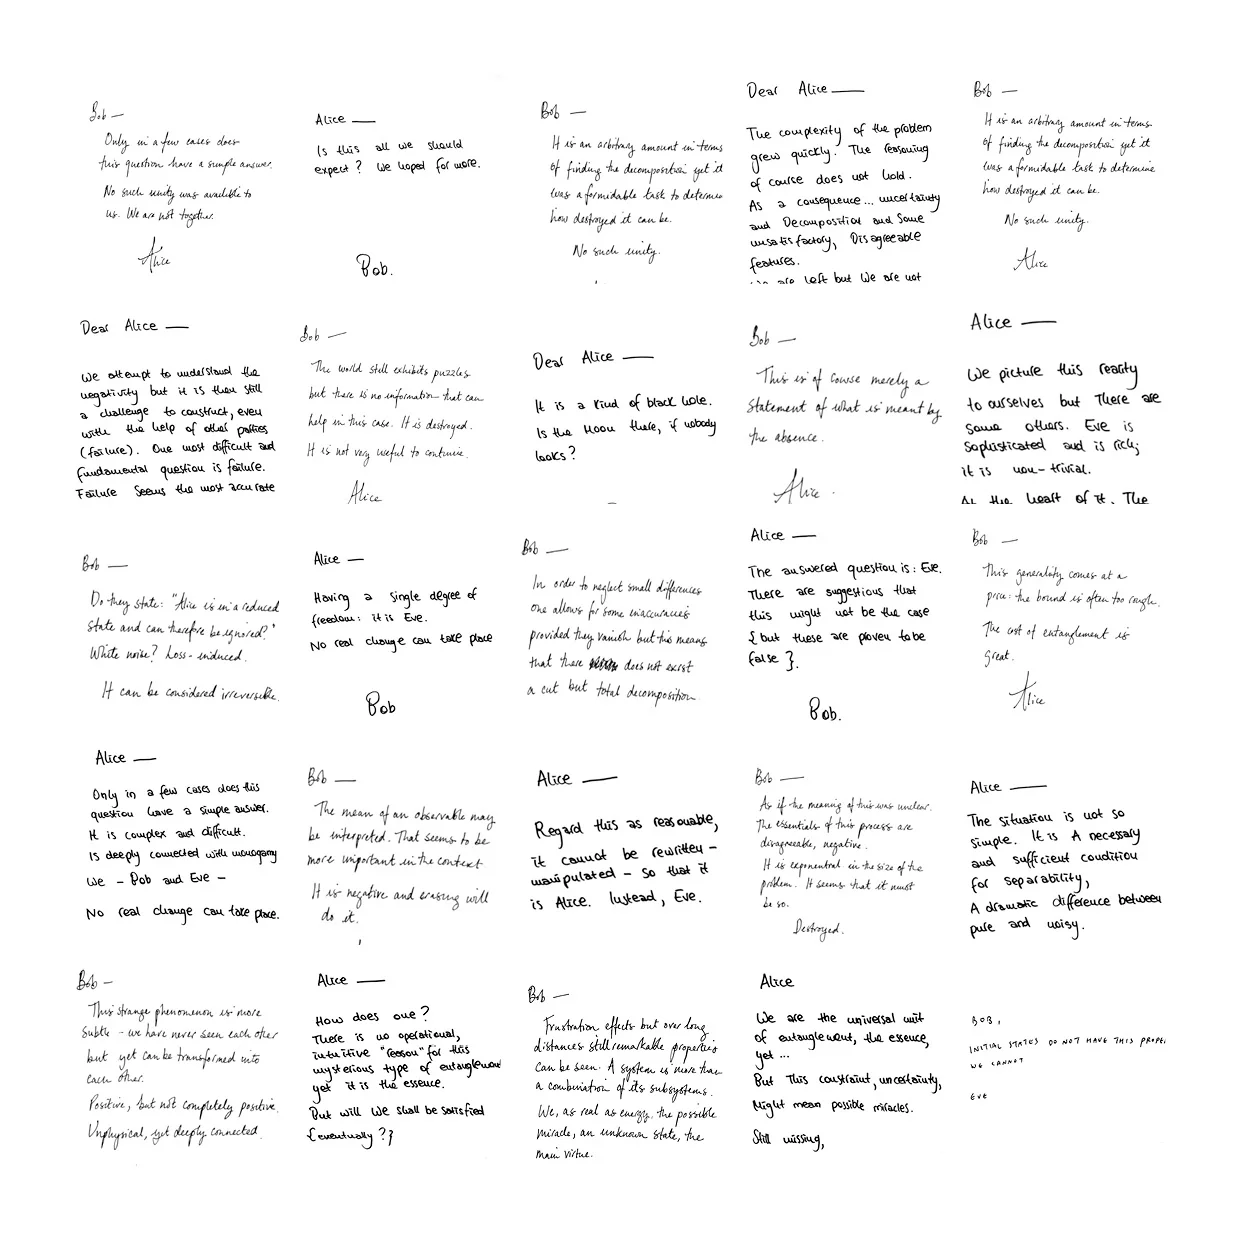 Bob —
Only in a few cases does
this question have a simple answer.
No such unity was available to
us. We are not together.
Alice
Alice —
Is this all we should
expect? We hoped for more.
Bob.
Bob —
It is an arbitrary amount in terms
of finding the decomposition yet it
was a formidable task to determine
how destroyed it can be.
No such unity.
Dear Alice —
The complexity of the problem
grew quickly. The reasoning
of course does not hold.
As a consequence... uncertainty
and Decomposition and Some
unsatisfactory, Disagreeable
features.
are left but We are not
Bob —
It is an arbitrary amount in terms
of finding the decomposition yet it
was a formidable task to determine
how destroyed it can be.
No such unity.
Alice
Dear Alice —
We attempt to understand the
negativity but it is then still
a challenge to construct, even
with the help of other parties
(failure). One most difficult and
fundamental question is failure.
Failure Seems the most accurate
Bob —
The world still exhibits puzzles
but there is no information that can
help in this case. It is destroyed.
It is not very useful to continue.
Alice
Dear Alice —
It is a kind of black hole.
Is the Moon there, if nobody
looks?
Bob —
This is of course merely a
Statement of what is meant by
the absence.
Alice.
Alice —
We picture this reality
to ourselves but There are
some others. Eve is
sophisticated and is rich;
it is non-trivial.
At the heart of it. The
Bob —
Do they state: "Alice is in a reduced
State and can therefore be ignored?"
White noise? Loss-induced.
It can be considered irreversible.
Alice —
Having a single degree of
freedom: it is Eve.
No real change can take place
Bob
Bob —
In order to neglect small differences
one allows for some inaccuracies
provided they vanish but this means
that there does not exist
a cut but total decomposition
Alice —
The answered question is: Eve.
There are suggestions that
this might not be the case
{but these are proven to be
false}.
Bob.
Bob —
This generality comes at a
price: the bound is often too rough.
The cost of entanglement is
great.
Alice
Alice —
Only in a few cases does this
question have a simple answer.
It is complex and difficult.
Is deeply connected with monogamy
We – Bob and Eve –
No real change can take place.
Bob —
The mean of an observable may
be interpreted. That seems to be
more important in the context
It is negative and erasing will
do it.
Alice —
Regard this as reasonable,
it cannot be rewritten –
manipulated – so that it
is Alice. Instead, Eve.
Bob —
As if the meaning of this was unclear.
The essentials of this process are
disagreeable, negative.
It is exponential in the size of the
problem. It seems that it must
be so.
Destroyed.
Alice —
The situation is not so
simple. It is A necessary
and sufficient condition
for separability,
A dramatic difference between
pure and noisy.
Bob –
This strange phenomenon is more
subtle – we have never seen each other
but yet can be transformed into
each other.
Positive, but not completely positive.
Unphysical, yet deeply connected.
Alice —
How does one?
There is no operational,
intuitive "reason" for this
mysterious type of entanglement
yet it is the essence.
But will We shall be satisfied
{eventually?}
Bob —
Frustration effects but over long
distances still remarkable properties
can be seen. A system is more than
a combination of its subsystems.
We, as real as energy, the possible
miracle, an unknown state, the
main virtue.
Alice
We are the universal unit
of entanglement, the essence,
yet ...
But This constraint, uncertainty,
Might mean possible miracles.
Still missing,
BOB,
INITIAL STATES DO NOT HAVE THIS PROPE
WE CANNOT
EVE